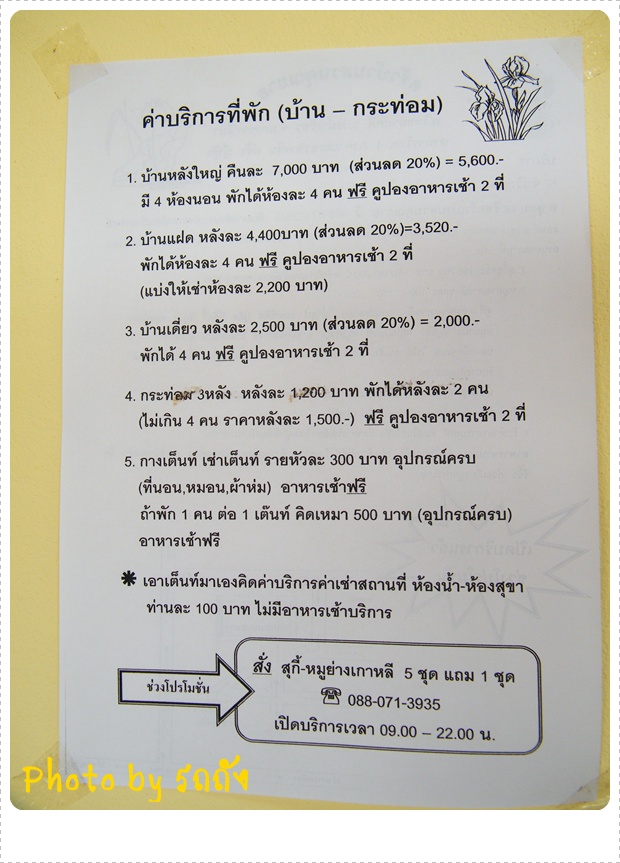 ค่าบริการที่พัก (บ้าน – กระท่อม)
1. บ้านหลังใหญ่ คืนละ 7,000 บาท (ส่วนลด 20%) = 5,600.-
มี 4 ห้องนอน พักได้ห้องละ 4 คน ฟรี คูปองอาหารเช้า 2 ที่
2. บ้านแฝด หลังละ 4,400บาท (ส่วนลด 20%)=3,520.-
พักได้ห้องละ 4 คน ฟรี คูปองอาหารเช้า 2 ที่
(แบ่งให้เช่าห้องละ 2,200 บาท)
3. บ้านเดี่ยว หลังละ 2,500 บาท (ส่วนลด 20%) = 2,000.-
พักได้ 4 คน ฟรี คูปองอาหารเช้า 2 ที่
4. กระท่อม 3หลัง หลังละ 1,200 บาท พักได้หลังละ 2 คน
(ไม่เกิน 4 คน ราคาหลังละ 1,500.-) ฟรี คูปองอาหารเช้า 2 ที่
5. กางเต็นท์ เช่าเต็นท์ รายหัวละ 300 บาท อุปกรณ์ครบ
(ที่นอน,หมอน,ผ้าห่ม) อาหารเช้าฟรี
ถ้าพัก 1 คน ต่อ 1 เต๊นท์ คิดเหมา 500 บาท (อุปกรณ์ครบ)
อาหารเช้าฟรี
✱ เอาเต็นท์มาเองคิดค่าบริการค่าเช่าสถานที่ ห้องน้ำ-ห้องสุขา
ท่านละ 100 บาท ไม่มีอาหารเช้าบริการ
ช่วงโปรโมชั่น
สั่ง สุกี้-หมูย่างเกาหลี 5 ชุด แถม 1 ชุด
☎ 088-071-3935
เปิดบริการเวลา 09.00 – 22.00 น.
Photo by รถถัง